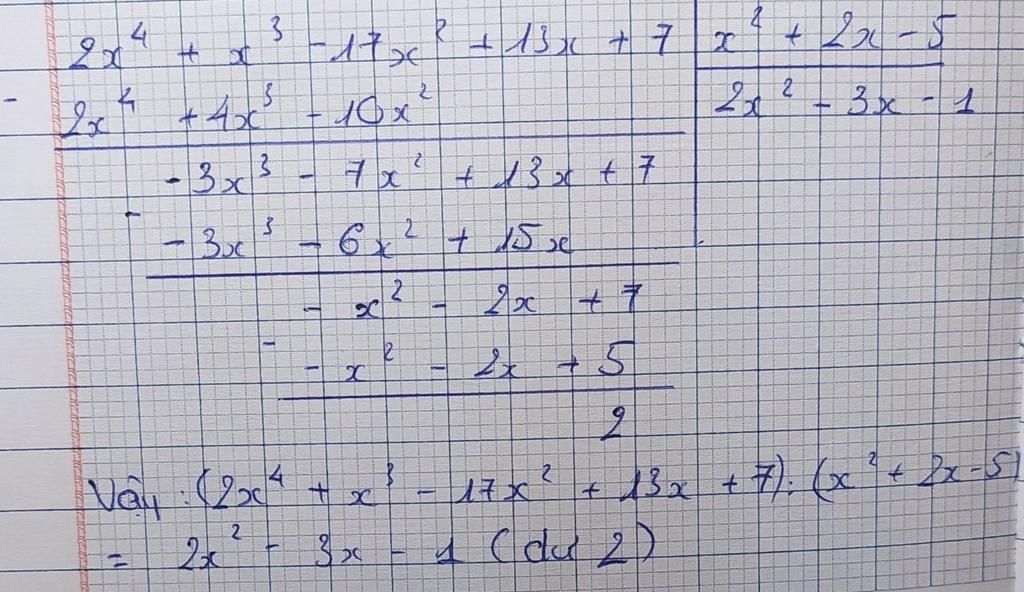 2x⁴ + x³ - 17x² + 13x + 7 | x² + 2x - 5
- 2x⁴ + 4x³ - 10x² | 2x² - 3x - 1
- 3x³ - 7x² + 13x + 7
- - 3x³ - 6x² + 15x
- x² - 2x + 7
- - x² - 2x + 5
2
Vậy : (2x⁴ + x³ - 17x² + 13x + 7) : (x² + 2x - 5)
= 2x² - 3x - 1 (dư 2)